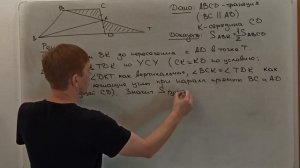 B
C
K
A
D
T
Дано: ABCD-трапеция
(BC || AD)
K-середина CD
Доказать: S ABK = 1/2 S ABCD
BK до пересечения с AD в точке T.
TDK по УСУ (CK=KD по условию;
∠DKT как вертикальные, ∠BCK=∠TDK как
углы при паралл. прямых BC и AD
CD). Значит S